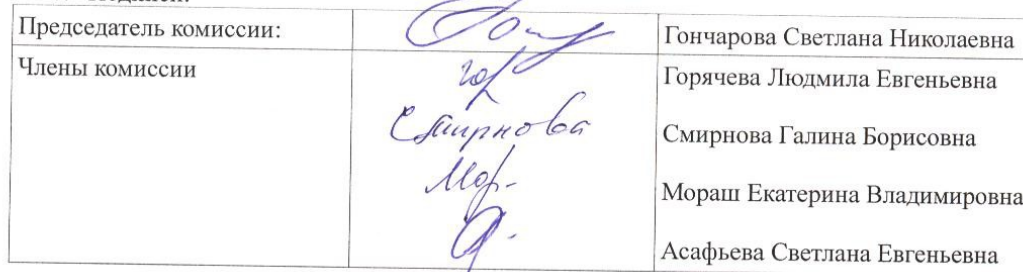 Председатель комиссии:
Гончарова Светлана Николаевна
Члены комиссии
Гор
Горячева Людмила Евгеньевна
Смирнова
Смирнова Галина Борисовна
Мор-
Мораш Екатерина Владимировна
Асафьева Светлана Евгеньевна